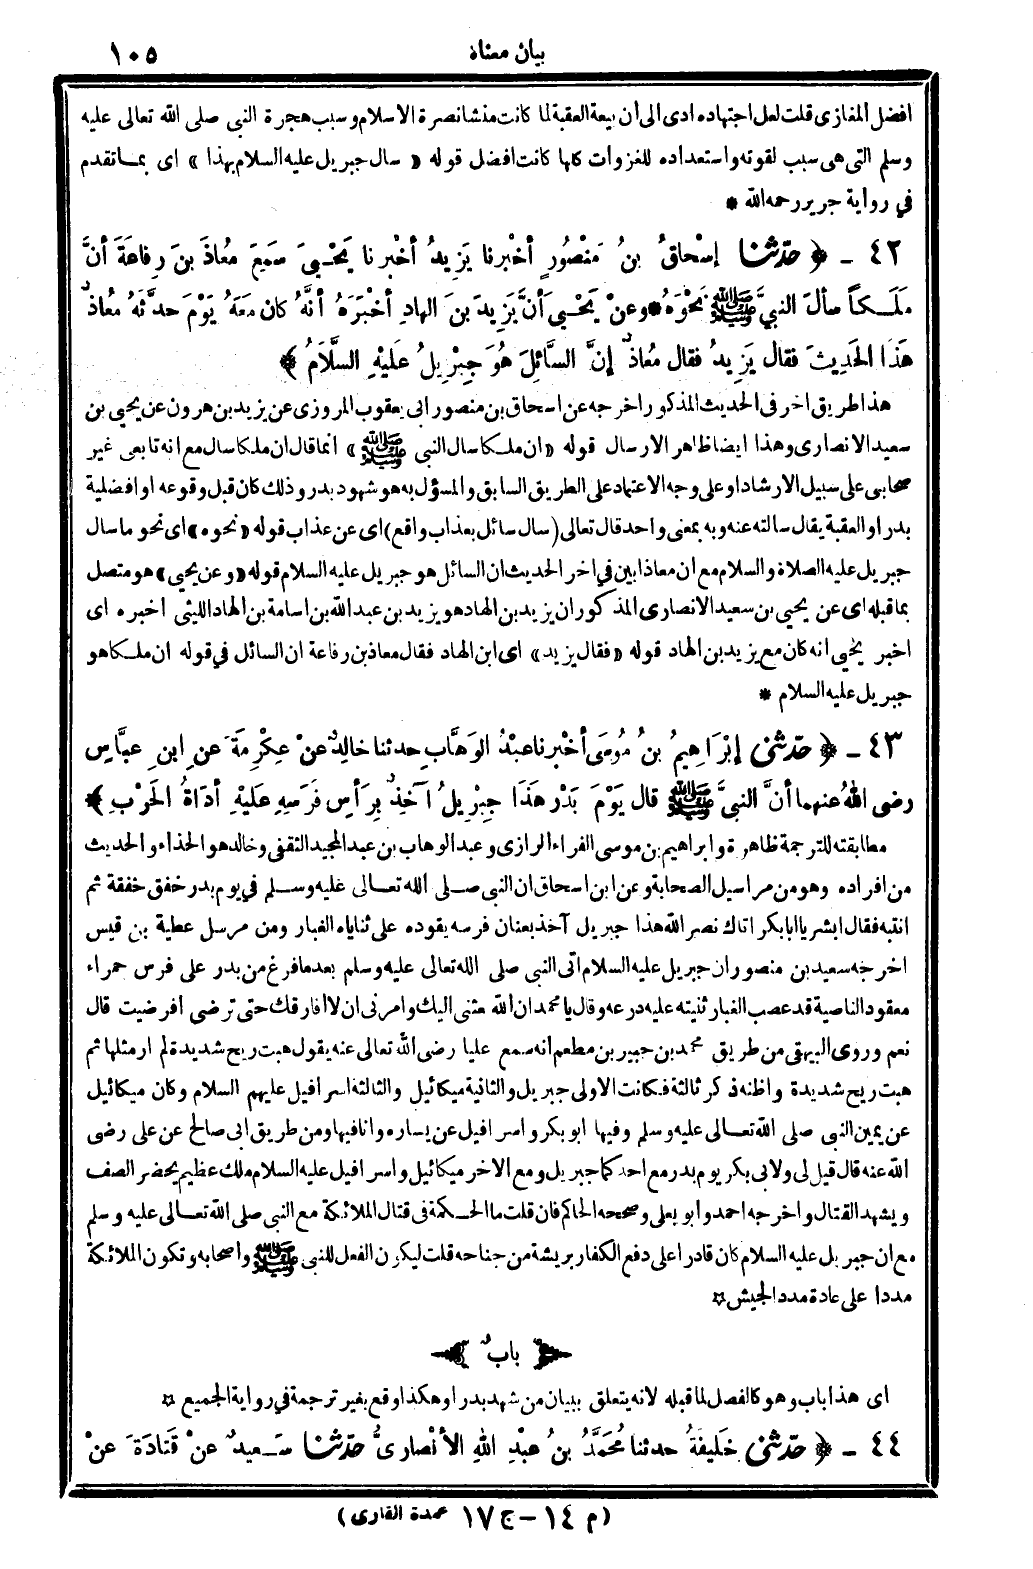 بيان معناه ١٠٥
افضل المغازى قلت لعل اجتهاده ادى الى أن بيعة العقبة لما كانت منشا نصرة الاسلام وسبب هجرة النبى صلى الله تعالى عليه
وسلم التى هى سبب لقوته واستعداده للغزوات كلها كانت افضل قوله « سال جبريل عليه السلام بهذا » اى بما تقدم
فى رواية جرير رحمه الله *
٤٢ - ﴿ حدّثنا إسْحاقُ بنُ مَنْصُورٍ أخْبرنا يَزِيدُ أخْبرنا يَحْيىَ سَمِعَ مُعاذَ بنَ رِفاعَةَ أنَّ
مَلَكاً سألَ النبيَّ ﷺ نَحْوَهُ * وعنْ يَحْيىَ أنَّ يَزِيدَ بنَ الهادِ أخْبَرَهُ أنَّهُ كان مَعَهُ يَوْمَ حدثهُ مُعاذٌ
هَذَا الحَدِيثَ فقال يَزِيدُ فقال مُعاذٌ إنَّ السَّائِلَ هُوَ جِبْرِيلُ عَلَيْهِ السَّلاَمُ ﴾
هذا طريق اخر فى الحديث المذكور اخرجه عن اسحاق بن منصور ابى يعقوب المروزى عن يزيد بن هرون عن يحيى بن
سعيد الانصارى وهذا ايضا ظاهر الارسال قوله « ان ملكا سال النبى ﷺ » انما قال ان ملكا سال مع انه تابعى غير
صحابى على سبيل الارشاد او على وجه الاعتماد على الطريق السابق والمسؤل به هو شهود بدر وذلك كان قبل وقوعه او افضلية
بدر او العقبة يقال سالته عنه وبه بمعنى واحد قال تعالى (سال سائل بعذاب واقع) اى عن عذاب قوله «نحوه» اى نحو ما سال
جبريل عليه الصلاة والسلام مع ان معاذا بين فى اخر الحديث ان السائل هو جبريل عليه السلام قوله «وعن يحيى» هو متصل
بما قبله اى عن يحيى بن سعيد الانصارى المذكور ان يزيد بن الهاد هو يزيد بن عبد الله بن اسامة بن الهاد الليثى اخبره اى
اخبر يحيى انه كان مع يزيد بن الهاد قوله « فقال يزيد » اى ابن الهاد فقال معاذ بن رفاعة ان السائل فى قوله ان ملكا هو
جبريل عليه السلام *
٤٣ - ﴿ حدّثنى إبْرَاهِيمُ بنُ مُوسَى أخْبرنا عبْدُ الوَهَّابِ حدثنا خالِدٌ عنْ عِكْرِمَةَ عنِ ابنِ عبَّاسٍ
رضى اللهُ عنهما أنَّ النبيَّ ﷺ قال يَوْمَ بَدْرٍ هَذَا جِبْرِيلُ آخِذٌ بِرَأسِ فَرَسِهِ عَلَيْهِ أدَاةُ الحَرْبِ ﴾
مطابقته للترجمة ظاهرة وابراهيم بن موسى الفراء الرازى وعبد الوهاب بن عبد المجيد الثقفى وخالد هو الحذاء والحديث
من افراده وهو من مراسيل الصحابة وعن ابن اسحاق ان النبى صلى الله تعالى عليه وسلم فى يوم بدر خفق خفقة ثم
انتبه فقال ابشر يا ابا بكر اتاك نصر الله هذا جبريل آخذ بعنان فرسه يقوده على ثناياه الغبار ومن مرسل عطية بن قيس
اخرجه سعيد بن منصور ان جبريل عليه السلام اتى النبى صلى الله تعالى عليه وسلم بعد ما فرغ من بدر على فرس حمراء
معقود الناصية قد عصب الغبار ثنيته عليه درعه وقال يا محمد ان الله بعثنى اليك وامرنى ان لا افارقك حتى ترضى افرضيت قال
نعم وروى البيهقى من طريق محمد بن جبير بن مطعم انه سمع عليا رضى الله تعالى عنه يقول هبت ريح شديدة لم ار مثلها ثم
هبت ريح شديدة واظنه ذكر ثالثة فكانت الاولى جبريل والثانية ميكائيل والثالثة اسرافيل عليهم السلام وكان ميكائيل
عن يمين النبى صلى الله تعالى عليه وسلم وفيها ابو بكر واسرافيل عن يساره وانا فيها ومن طريق ابى صالح عن على رضى
الله عنه قال قيل لى ولابى بكر يوم بدر مع احدكما جبريل ومع الاخر ميكائيل واسرافيل عليه السلام ملك عظيم يحضر الصف
ويشهد القتال واخرجه احمد وابو يعلى وصححه الحاكم فان قلت ما الحكمة فى قتال الملائكة مع النبى صلى الله تعالى عليه وسلم
مع ان جبريل عليه السلام كان قادرا على دفع الكفار بريشة من جناحه قلت ليكون الفعل للنبى ﷺ واصحابه وتكون الملائكة
مددا على عادة مدد الجيش ¤
باب
اى هذا باب وهو كالفصل لما قبله لانه يتعلق ببيان من شهد بدرا وهكذا وقع بغير ترجمة فى رواية الجميع ¤
٤٤ - ﴿ حدّثنى خَلِيفَةُ حدثنا مُحَمَّدُ بنُ عبْدِ اللهِ الأنْصارىُّ حدّثنا سَعيدٌ عنْ قَتادَةَ عنْ
(م ١٤ - ج ١٧ عمدة القارى)